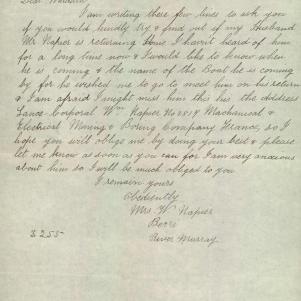 Dear Madam
I am writing these few lines to ask you
if you would kindly try & find out if my Husband
Mr Napier is returning Home I havn't heard of him
for a long time now & I would like to know when
he is coming & the name of the Boat he is coming
by for he wished me to go to meet him on his return
& I am afraid I might miss him this his the address
Lance Corporal Wm Napier No 2819 Machanical &
Electrical Mining & Boring Company France, so I
hope you will oblige me by doing your best & please
let me know as soon as you can for I am very anxious
about him so I will be much obliged to you
I remain yours
Obediently
Mrs W Napier
River Murray